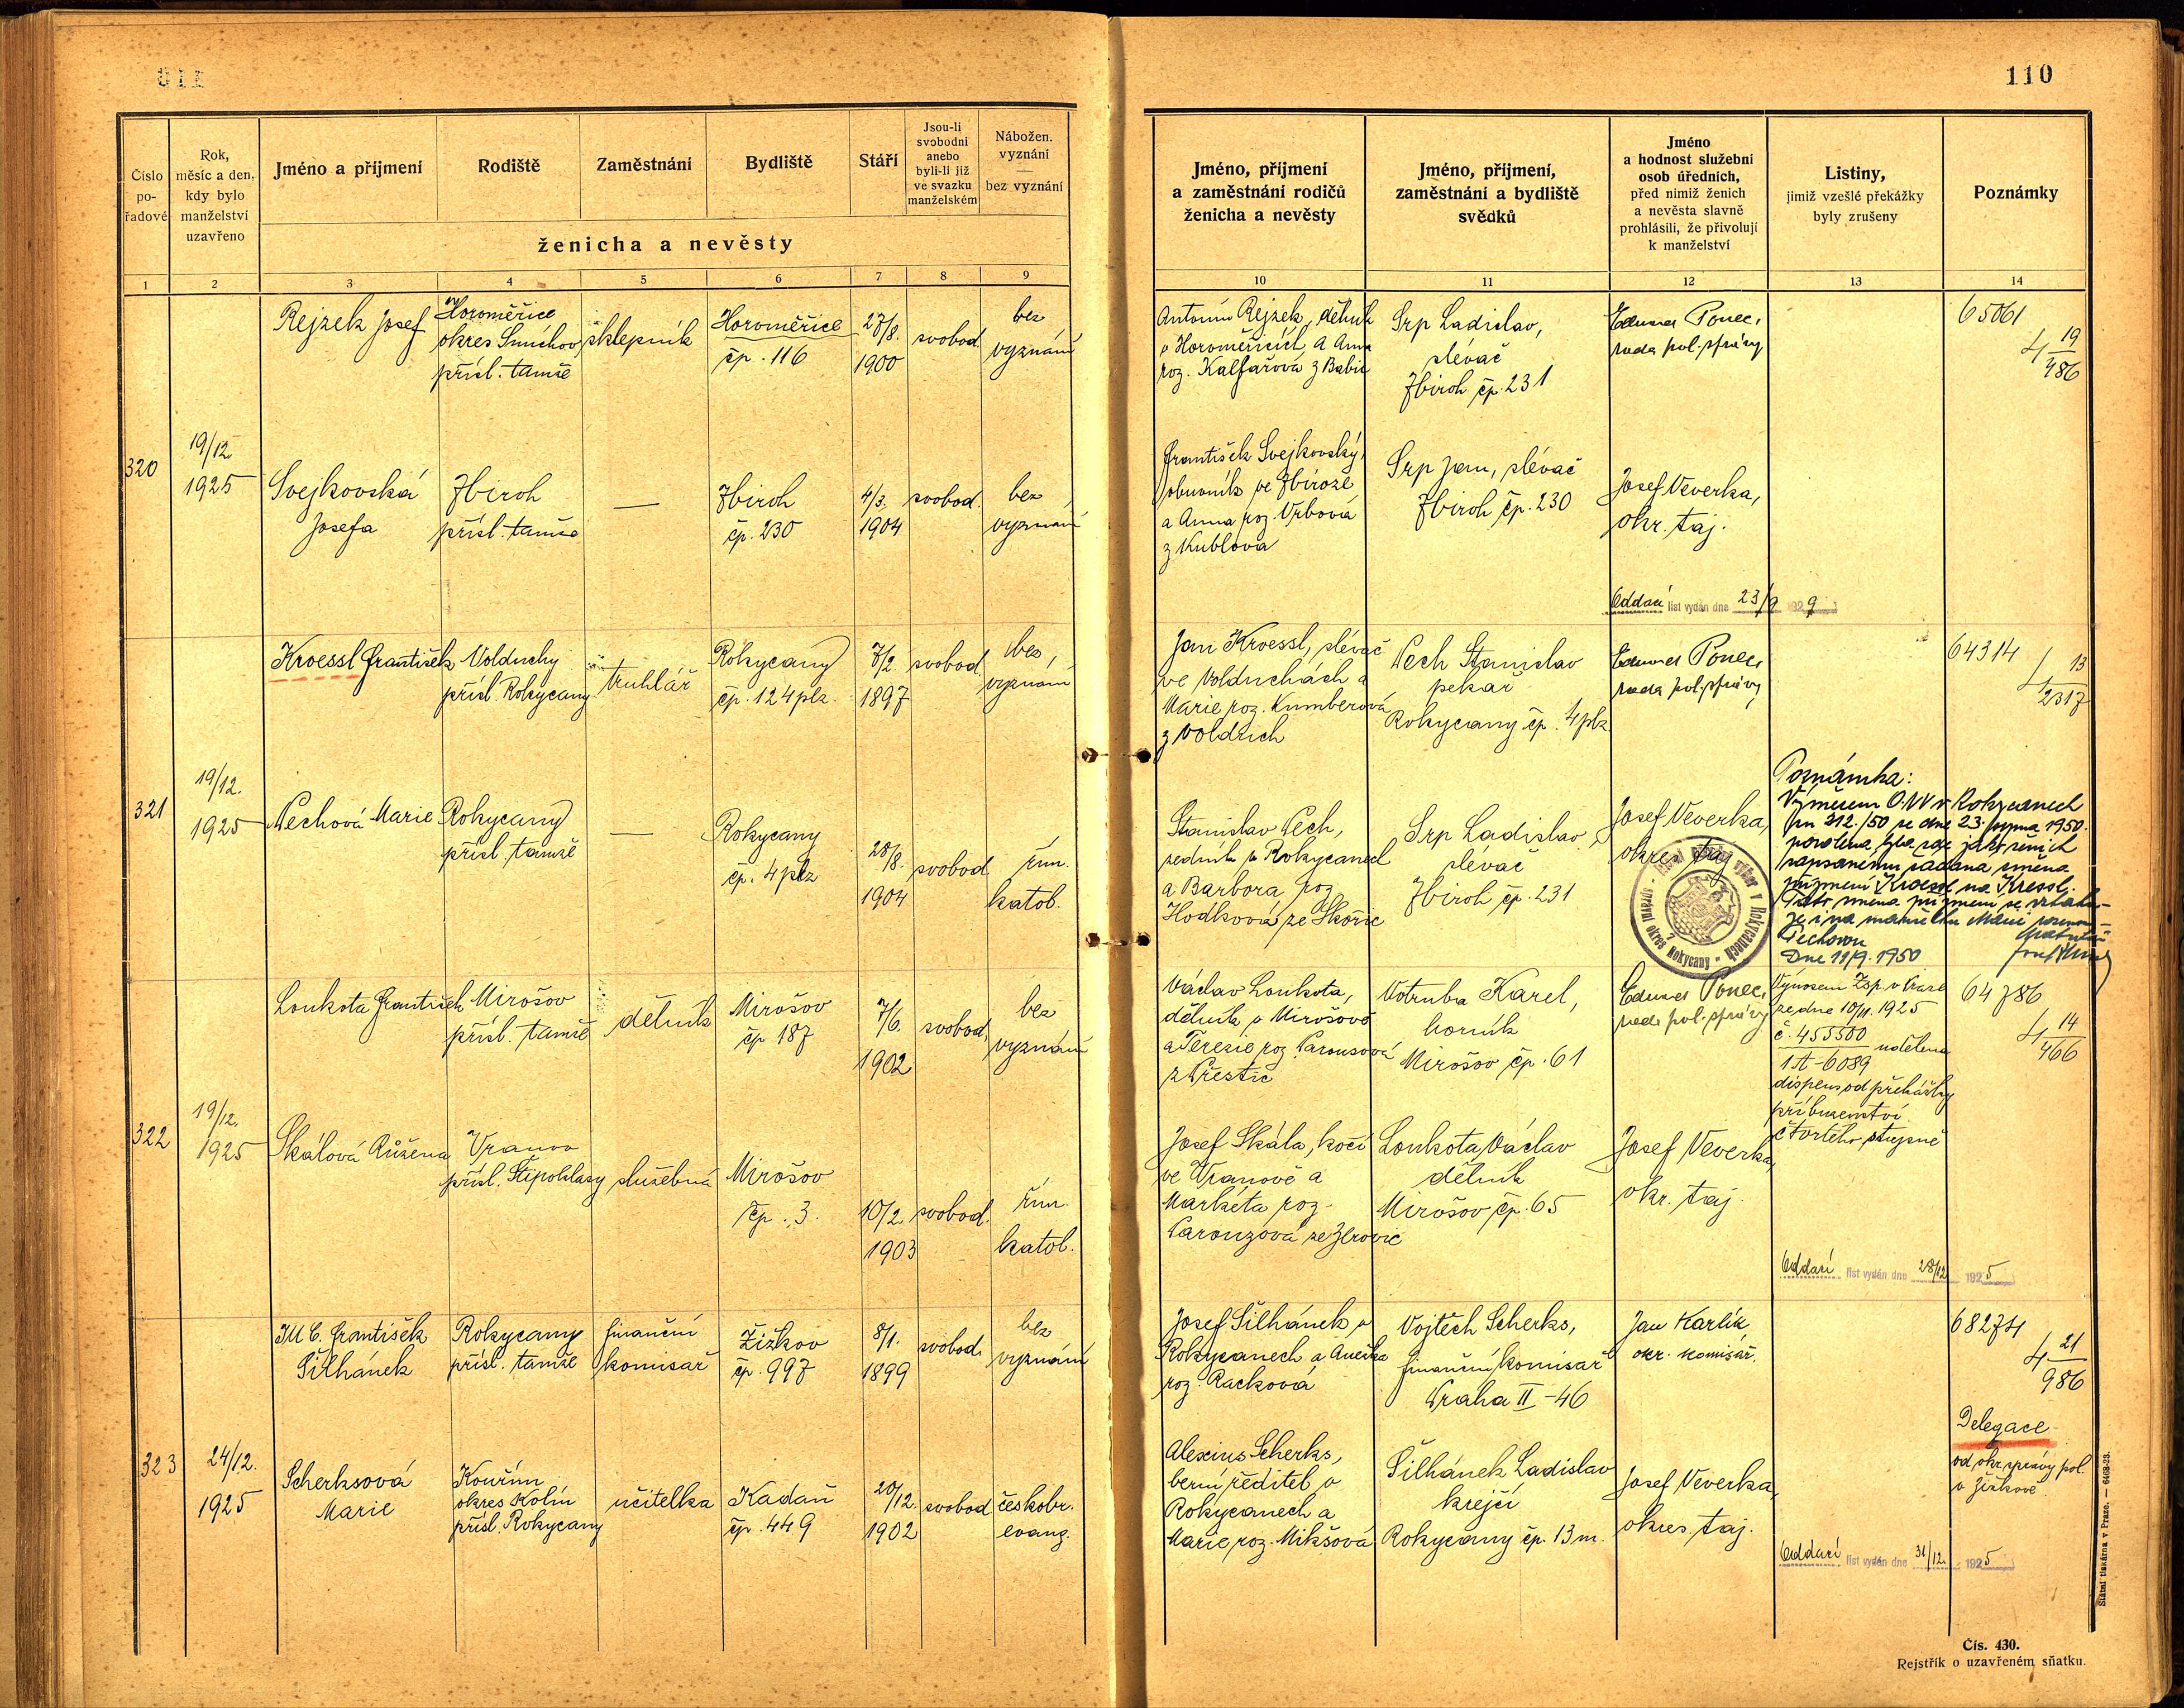 110
Číslo
po-
řadové
Rok,
měsíc a den,
kdy bylo
manželství
uzavřeno
Jméno a příjmení
Rodiště
Zaměstnání
Bydliště
Stáří
Jsou-li
svobodni
anebo
byli-li již
ve svazku
manželském
Nábožen.
vyznání
bez vyznání
ženicha a nevěsty
Jméno, příjmení
a zaměstnání rodičů
ženicha a nevěsty
Jméno, příjmení,
zaměstnání a bydliště
svědků
Jméno
a hodnost služební
osob úředních,
před nimiž ženich
a nevěsta slavně
prohlásili, že přivolují
k manželství
Listiny,
jimiž vzešlé překážky
byly zrušeny
Poznámky
1 2 3 4 5 6 7 8 9 10 11 12 13 14
320
19/12
1925
Rejzek Josef
Horoměřice
okres Smíchov
přísl. tamže
sklepník
Horoměřice
čp. 116
27/8.
1900
svobod.
bez
vyznání
Antonín Rejzek, dělník
v Horoměřicích a Anna
roz. Kalfařová z Babic
Srp Ladislav,
slévač
Zbiroh čp. 231
Eduard Ponec,
rada pol. správy
65061
4 19/486
Svejkovská
Josefa
Zbiroh
přísl. tamže
—
Zbiroh
čp. 230
4/3.
1904
svobod.
bez
vyznání
František Svejkovský,
obuvník ve Zbiroze
a Anna roz. Vrbová
z Kublova
Srp Jan, slévač
Zbiroh čp. 230
Josef Veverka,
okr. taj.
Oddací list vydán dne 23/9 1929
321
19/12.
1925
Kroessl František
Volduchy
přísl. Rokycany
truhlář
Rokycany
čp. 124 plz.
7/2
1897
svobod.
bez
vyznání
Jan Kroessl, slévač
ve Volduchách a
Marie roz. Kumberová
z Voldich
Pech Stanislav
pekař
Rokycany čp. 4 plz
Eduard Ponec,
rada pol. správy
64314
4 13/2317
Pechová Marie
Rokycany
přísl. tamže
—
Rokycany
čp. 4 plz
28/8.
1904
svobod.
řím.
katol.
Stanislav Pech,
zedník v Rokycanech
a Barbora roz.
Hodková ze Skořic
Srp Ladislav,
slévač
Zbiroh čp. 231
Josef Veverka,
okres. taj.
Poznámka:
Výměrem ONV v Rokycanech
čn 312./50 ze dne 23. srpna 1950.
povolena byla zde jakž ženich
zapsanému žádaná změna
příjmení Kroessl na Kressl.
Tato změna příjmení se vztahu-
je i na manželku Marii rozenou
Pechovou
Dne 11/9. 1950
výbor v Rokycanech
správní okres Rokycany
322
19/12.
1925
Loukota František
Mirošov
přísl. tamže
dělník
Mirošov
čp 187
7/6.
1902
svobod.
bez
vyznání
Václav Loukota,
dělník v Mirošově
a Terezie roz. Parousová
z Přeštic
Votruba Karel,
horník
Mirošov čp. 61
Eduard Ponec,
rada pol. správy
Výnosem Zsp. v Praze
ze dne 10/11. 1925
č. 455500
1A-6089 udělena
dispens od překážky
příbuzenství
čtvrtého stupně
64786
4 14/466
Skálová Růžena
Vranov
přísl. Štipoklasy
služebná
Mirošov
čp. 3.
10/2.
1903
svobod.
řím.
katol.
Josef Skála, kočí
ve Vranově a
Markéta roz.
Parouzová ze Zlrovic
Loukota Václav
dělník
Mirošov čp. 65
Josef Veverka,
okr. taj.
Oddací list vydán dne 28/12 1925
323
24/12.
1925
JUC. František
Šilhánek
Rokycany
přísl. tamže
finanční
komisař
Žižkov
čp. 997
8/1.
1899
svobod.
bez
vyznání
Josef Šilhánek v
Rokycanech a Anežka
roz. Racková
Vojtěch Scherks,
finanční komisař
Praha II-46
Jan Karlík,
okr. komisař.
68274
4 21/986
Delegace
od okr. správy pol.
v Žižkově
Scherksová
Marie
Kouřim
okres Kolín
přísl. Rokycany
učitelka
Kadaň
čp. 449
20/12.
1902
svobod
českobr.
evang.
Alexius Scherks,
berní ředitel v
Rokycanech a
Marie roz. Mikšová
Šilhánek Ladislav
krejčí
Rokycany čp. 13 m.
Josef Veverka,
okres. taj.
Oddací list vydán dne 31/12. 1925
Státní tiskárna v Praze. — 6468-23.
Čís. 430.
Rejstřík o uzavřeném sňatku.